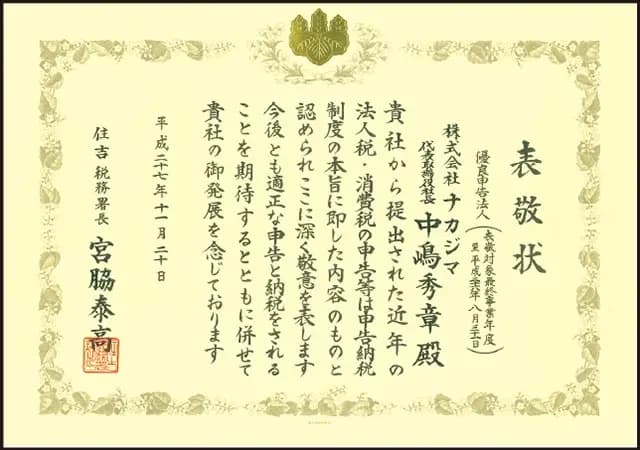 表敬状
優良申告法人
(表敬対象最終事業年度
至 平成二六年 八月三一日)
株式会社 ナカジマ
代表取締役社長 中嶋秀章 殿
貴社から提出された近年の
法人税・消費税の申告等は申告納税
制度の本旨に即した内容のものと
認められここに深く敬意を表します
今後とも適正な申告と納税をされる
ことを期待するとともに併せて
貴社の御発展を念じております
平成二十七年十一月二十日
住吉税務署長 宮脇泰高